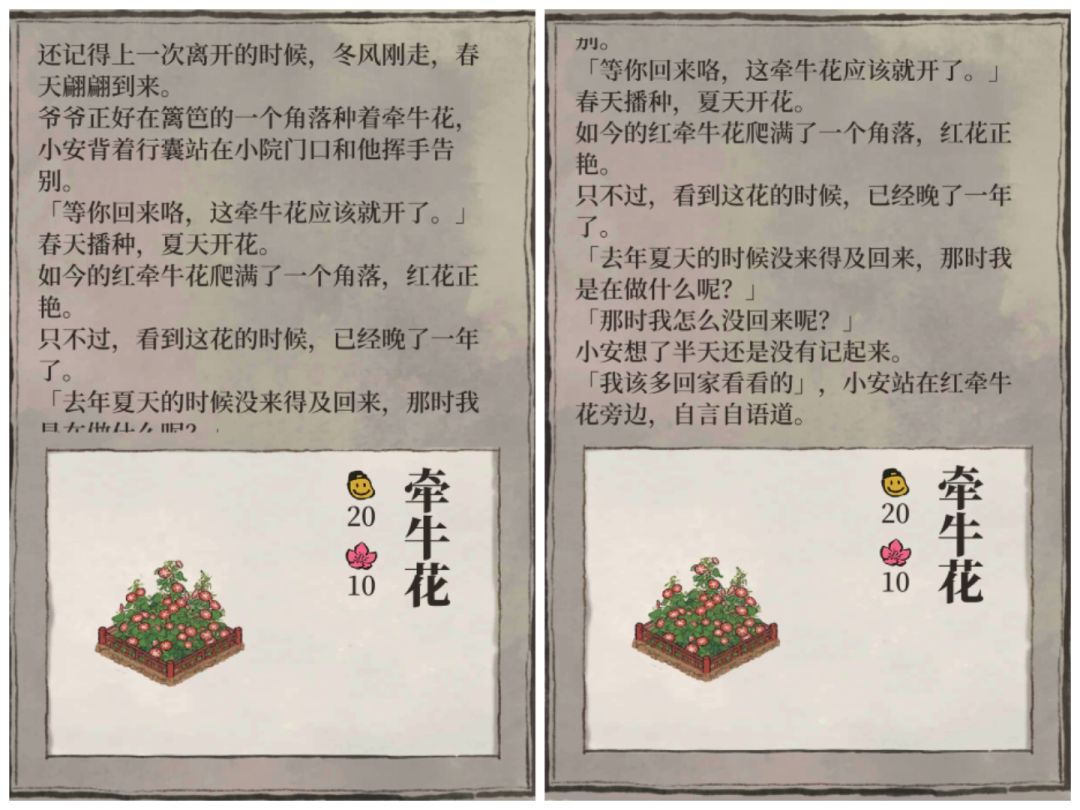 还记得上一次离开的时候，冬风刚走，春
天翩翩到来。
爷爷正好在篱笆的一个角落种着牵牛花，
小安背着行囊站在小院门口和他挥手告
别。
「等你回来咯，这牵牛花应该就开了。」
春天播种，夏天开花。
如今的红牵牛花爬满了一个角落，红花正
艳。
只不过，看到这花的时候，已经晚了一年
了。
「去年夏天的时候没来得及回来，那时我
是在做什么呢？」
20
10
牵牛花
别。
「等你回来咯，这牵牛花应该就开了。」
春天播种，夏天开花。
如今的红牵牛花爬满了一个角落，红花正
艳。
只不过，看到这花的时候，已经晚了一年
了。
「去年夏天的时候没来得及回来，那时我
是在做什么呢？」
「那时我怎么没回来呢？」
小安想了半天还是没有记起来。
「我该多回家看看的」，小安站在红牵牛
花旁边，自言自语道。
20
10
牵牛花